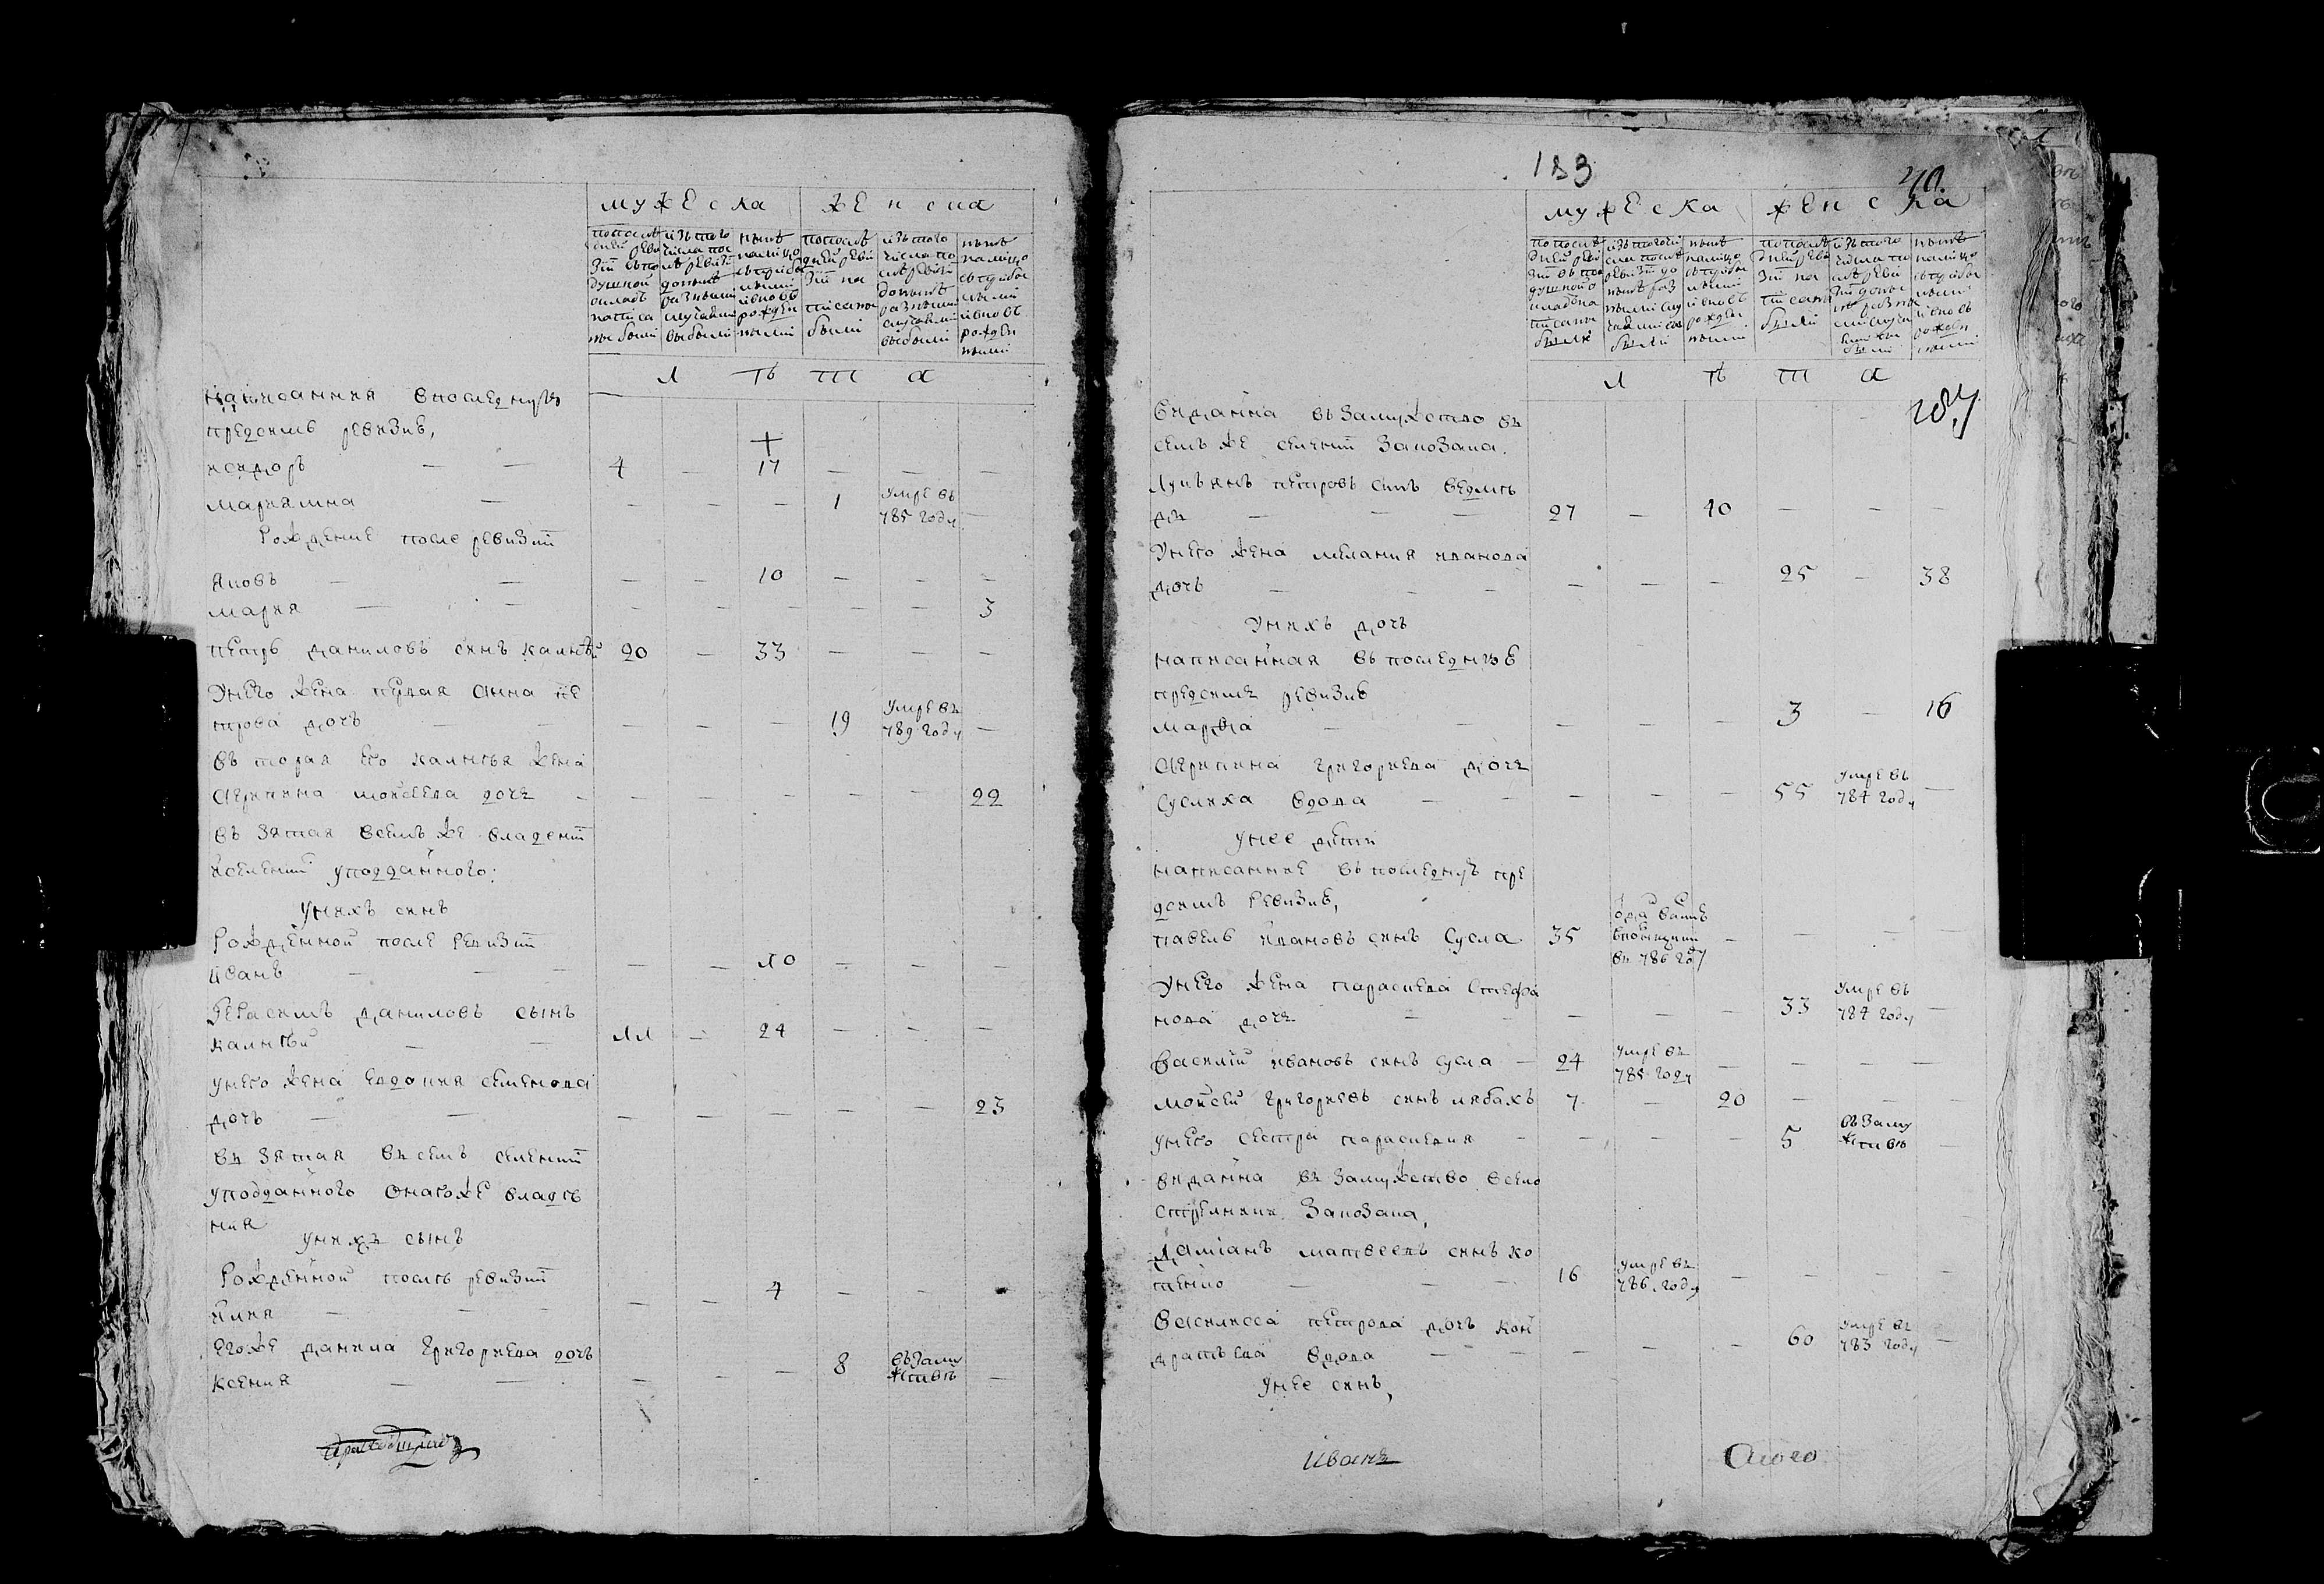 мужеска женска
по последней ревизіи въ подушной окладъ написаны были
изъ того числа после ревизіи до ныне разными случаями выбыли
ныне на лицо съ прибылыми и вновь рожденными
по последней ревизіи написаны были
изъ того числа после ревизіи до ныне разными случаями выбыли
ныне на лицо съ прибылыми и вновь рожденными
лѣта
написанния в последную
предсимъ ревизив,
+
— — 4 — 17 — — —
мариямна — — — — 1 умре въ 785 году —
рожденние после ревизіи
яковъ — — — — 10 — — —
мария — — — — — — — 3
петръ даниловъ синъ калнѣй 20 — 33 — — —
у него жена первая анна пе
трова дочъ — — — — — 19 умре въ 789 году —
въторая его калнѣя жена
агрипина мойсеева дочъ — — — — — — 22
въ зятая всемъ же владении
и селений у подданного:
у нихъ синъ
рожденной после ревизіи
иванъ — — — — — 10 — — —
герасимъ даниловъ сынъ
калнѣй — — 11 — 24 — — —
у него жена евдокия семенова
дочъ — — — — — — — 23
въ зятая въ семъ селении
у подданного онагоже владѣ
ния
у нихъ сынъ
рожденной послѣ ревизіи
илия — — — — — 4 — — —
егоже данила григориева дочъ
ксения — — — — — 8 въ замужствѣ —
183
40.
мужеска женска
по последней ревизіи въ подушной окладъ написаны были
изъ того числа после ревизіи до ныне разными случаями выбыли
ныне на лицо съ прибылыми и вновь рожденны ми
по последней ревизіи написаны были
изъ того числа после ревизіи до ныне разными случаями выбыли
ныне на лицо съ прибылыми и вновь рожденными
лѣта
виданна въ замужство въ
семъ же селении за козака.
лукъянъ петровъ синъ ведмѣ
дь — — — 27 — 40 — — —
у него жена мелания иванова
дочъ — — — — — — 25 — 38
у нихъ дочъ
написанная въ последнюю
предсимъ ревизив
марфа — — — — — 3 — 16
агрипина григориева дочъ
суслиха вдова — — — — — 55 умре въ 784 году —
у нее дѣти
написанние въ последную пре
дсимъ ревизив,
павелъ ивановъ синъ сусла 35 въ 786 году — — — —
у него жена параскева стефа
нова дочъ — — — — — 33 умре въ 784 году —
василий ивановъ синъ сусла — 24 умре въ 785 году — — — —
мойсей григориевъ синъ лябахъ 7 — 20 — — —
у него сестра параскевия — — — — 5 въ замужствѣ —
виданна въ замужство всело
за козака,
даміанъ матвеевъ синъ ко
тенко — — — 16 умре въ 786 году — — — —
василисса петрова дочъ кон
дратьева вдова — — — — — 60 умре въ 783 году —
у нее синъ,
иванъ